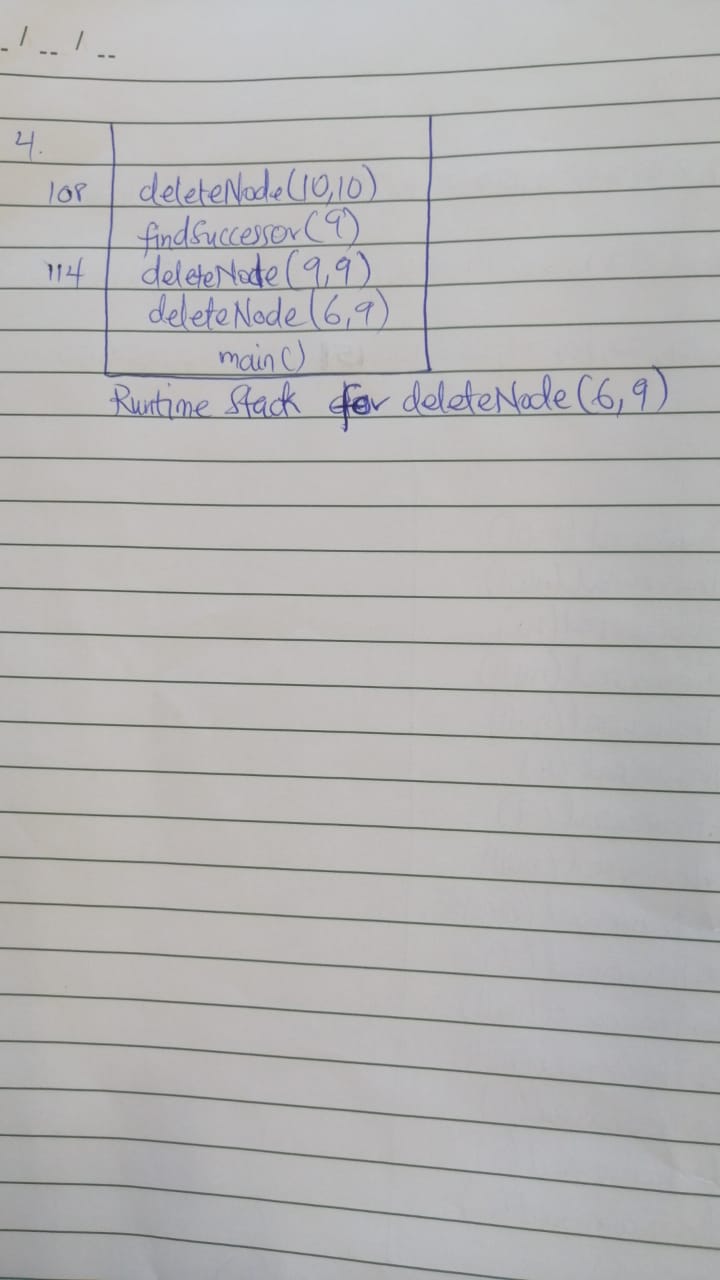 _/__/__
4.
108 deleteNode(10,10)
findSuccessor(9)
114 deleteNode(9,9)
deleteNode(6,9)
main()
Runtime Stack for deleteNode(6,9)